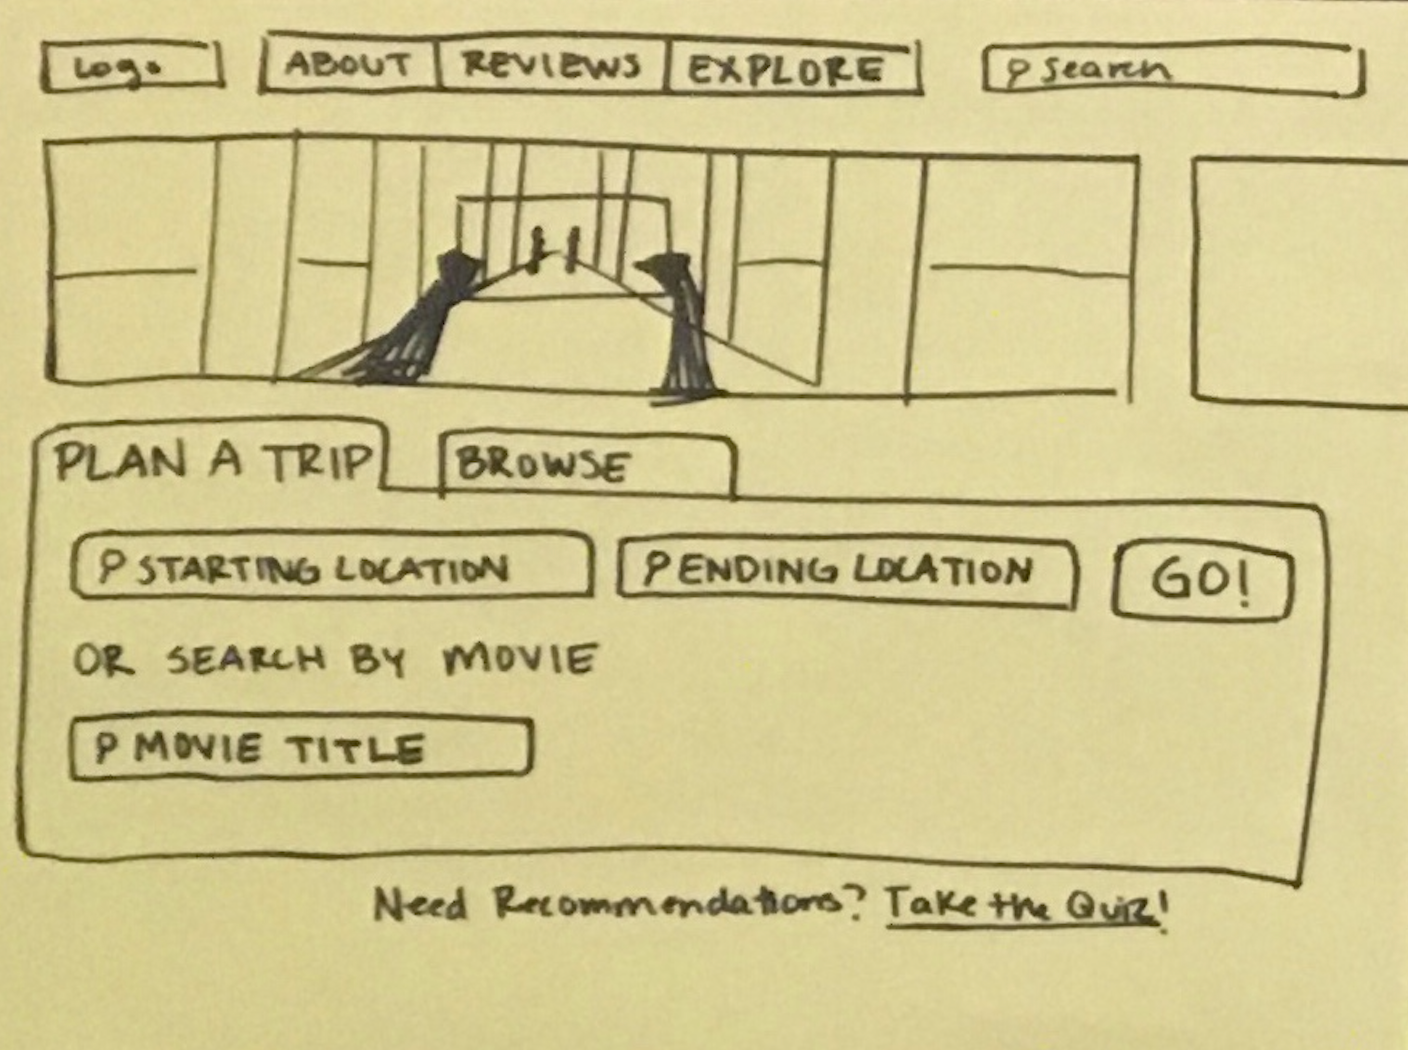 Logo ABOUT REVIEWS EXPLORE Search
PLAN A TRIP BROWSE
STARTING LOCATION ENDING LOCATION GO!
OR SEARCH BY MOVIE
MOVIE TITLE
Need Recommendations? Take the Quiz!